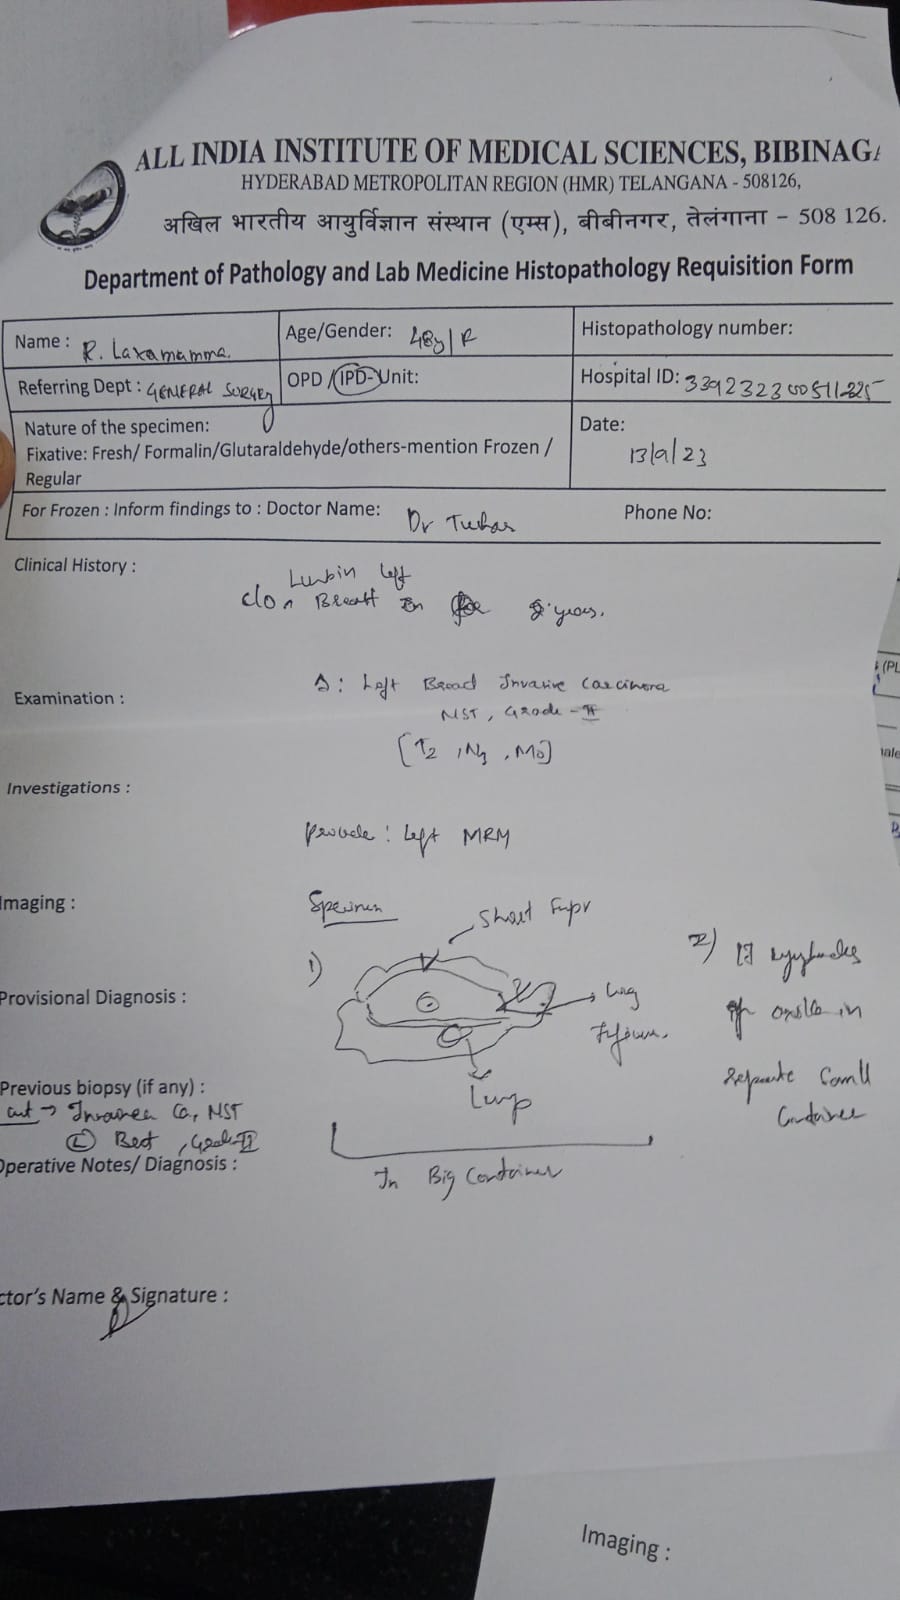 ALL INDIA INSTITUTE OF MEDICAL SCIENCES, BIBINAGA
HYDERABAD METROPOLITAN REGION (HMR) TELANGANA - 508126,
अखिल भारतीय आयुर्विज्ञान संस्थान (एम्स), बीबीनगर, तेलंगाना - 508 126.
Department of Pathology and Lab Medicine Histopathology Requisition Form
Name : R. Laxamamma.
Age/Gender: 48y/F
Histopathology number:
Referring Dept : GENERAL SURGERY
OPD /IPD-Unit:
Hospital ID:
Nature of the specimen:
Fixative: Fresh/ Formalin/Glutaraldehyde/others-mention Frozen /
Regular
Date:
13/9/23
For Frozen : Inform findings to : Doctor Name: Dr
Phone No:
Clinical History :
Left
c/o Breast years.
Examination :
Δ: Left Breast Invasive Carcinoma
NST, Grade - II
[T2 , , M0]
Investigations :
Left MRM
Imaging :
Specimen
Short
1)
2)
Provisional Diagnosis :
Long
axilla in
Lump
Separate Small
Container
Previous biopsy (if any) :
→ Invasive Ca, NST
(L) , Grade II
Operative Notes/ Diagnosis :
In Big Container
ctor's Name & Signature :
(PL
ale
Imaging :